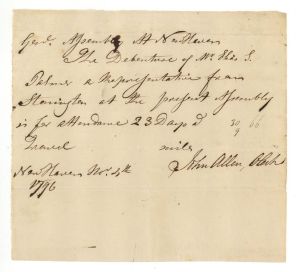 Genl. Assembly At New Haven
The Debenture of Mr. Thos. S.
Palmer a Representative from
Stonington at the present Assembly
is for attendance 23 Days at 30 66
Travel miles 9
New Haven Nov. 4th
1796
John Allen, Clerk